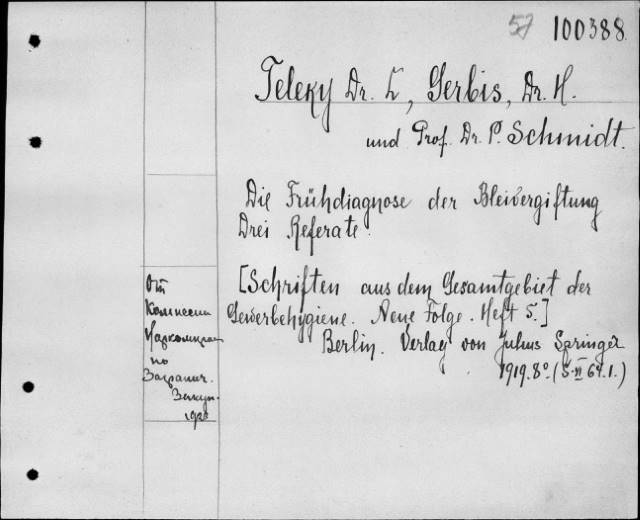 57 100388
Teleky Dr. L, Gerbis, Dr. H.
und Prof. Dr. P. Schmidt.
Die Frühdiagnose der Bleivergiftung
Drei Referate.
[Schriften aus dem Gesamtgebiet der
Gewerbehygiene. Neue Folge. Heft 5.]
Berlin. Verlag von Julius Springer
1919. 8º. (S. 64. 1.)
От
Комиссии
по
Заганич.
Закуп.